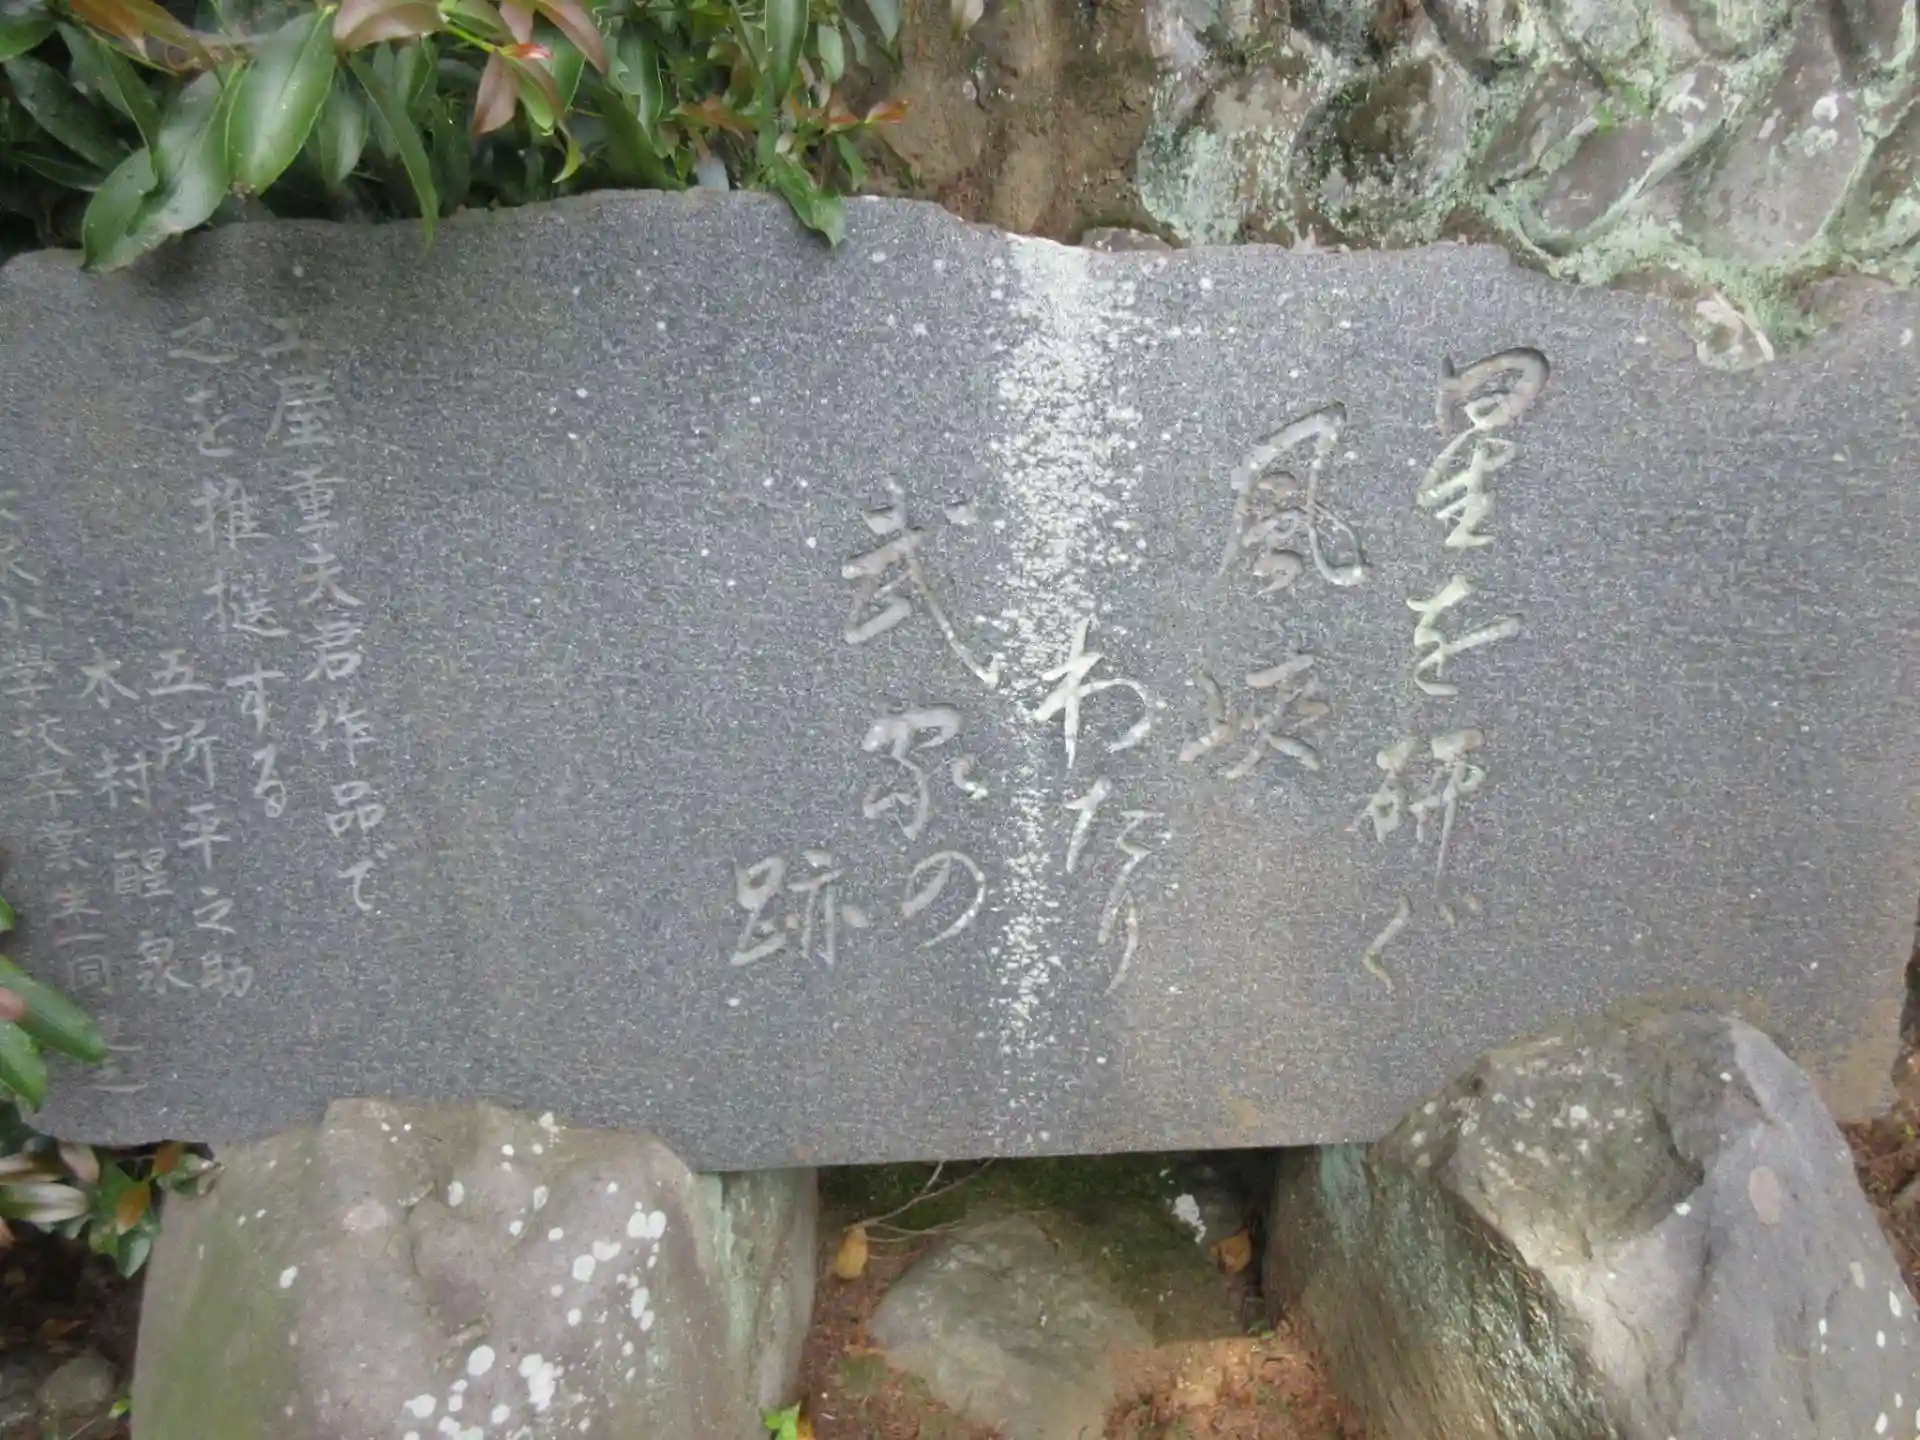 星を研ぐ
風峡
わたり
武家の
跡
土屋重夫君作品で
之を推選する
五所平之助
木村醒泉
小学校卒業生一同